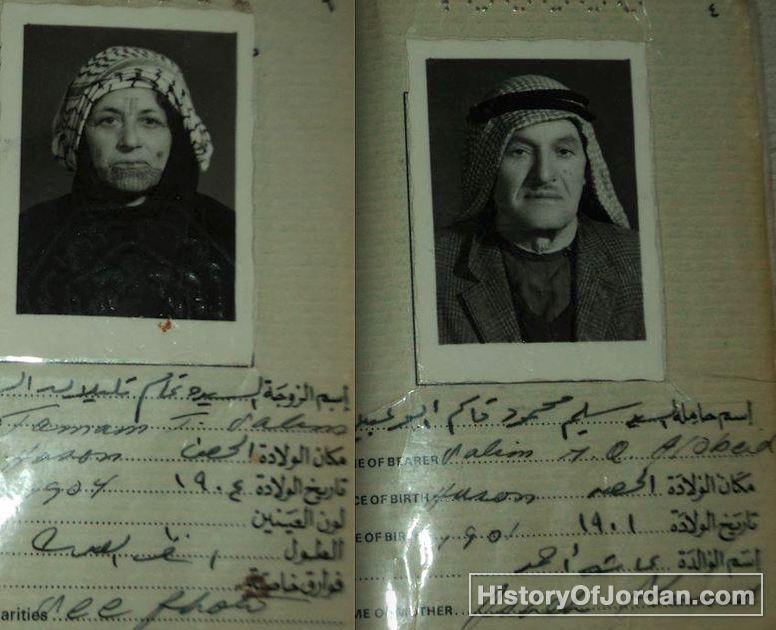 ٦
إسم الزوجة السيده تمام
Tamam T. Salim
مكان الولادة الحصن
Hoson
تاريخ الولادة ١٩٠٤
1904
لون العينين
الطول
فوارق خاصة
arities See photo
٤
إسم حاملة السيد سليم محمود قاسم
ME OF BEARER Salim M Q Alobeid
مكان الولادة الحصن
CE OF BIRTH Hoson
تاريخ الولادة ١٩٠١
OF BIR 1901
إسم الوالدة احمد
ME OF MOTHER
HistoryOfJordan.com